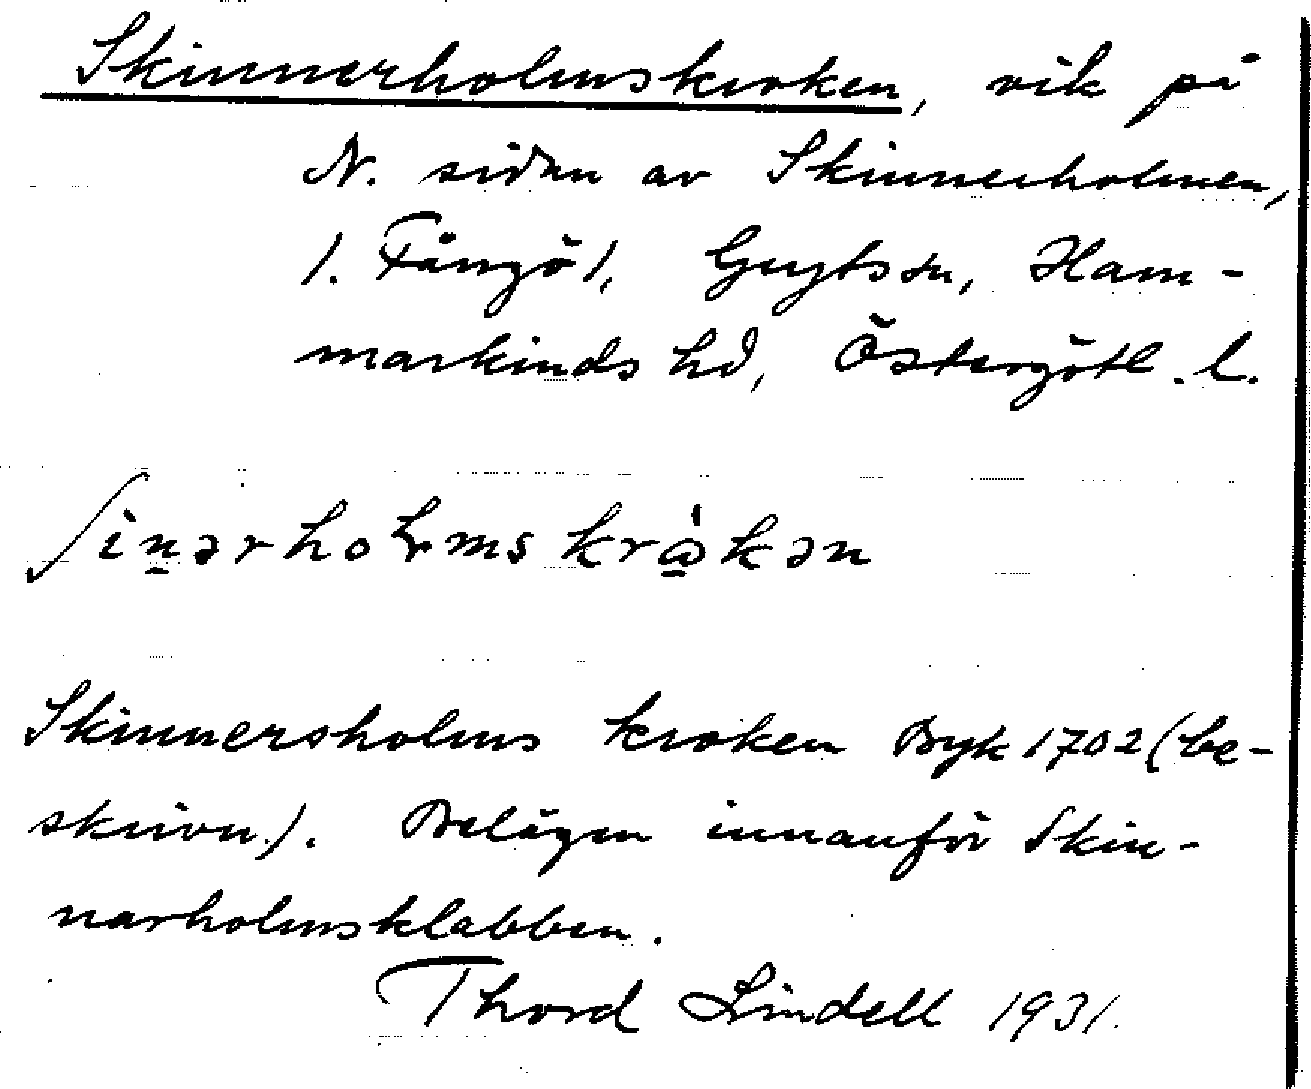 Skinnerholmskroken, vik på
N. sidan av Skinnerholmen,
/. Fångö/, Gryts sn, Ham-
markinds hd, Östergötl. l.
ʃìn̲ərholmskrǻ̲kən
Skinnersholms kroken Byk 1702 (be-
skrivn.). Belägen innanför Skin-
narholmsklabben.
Thord Lindell 1931.